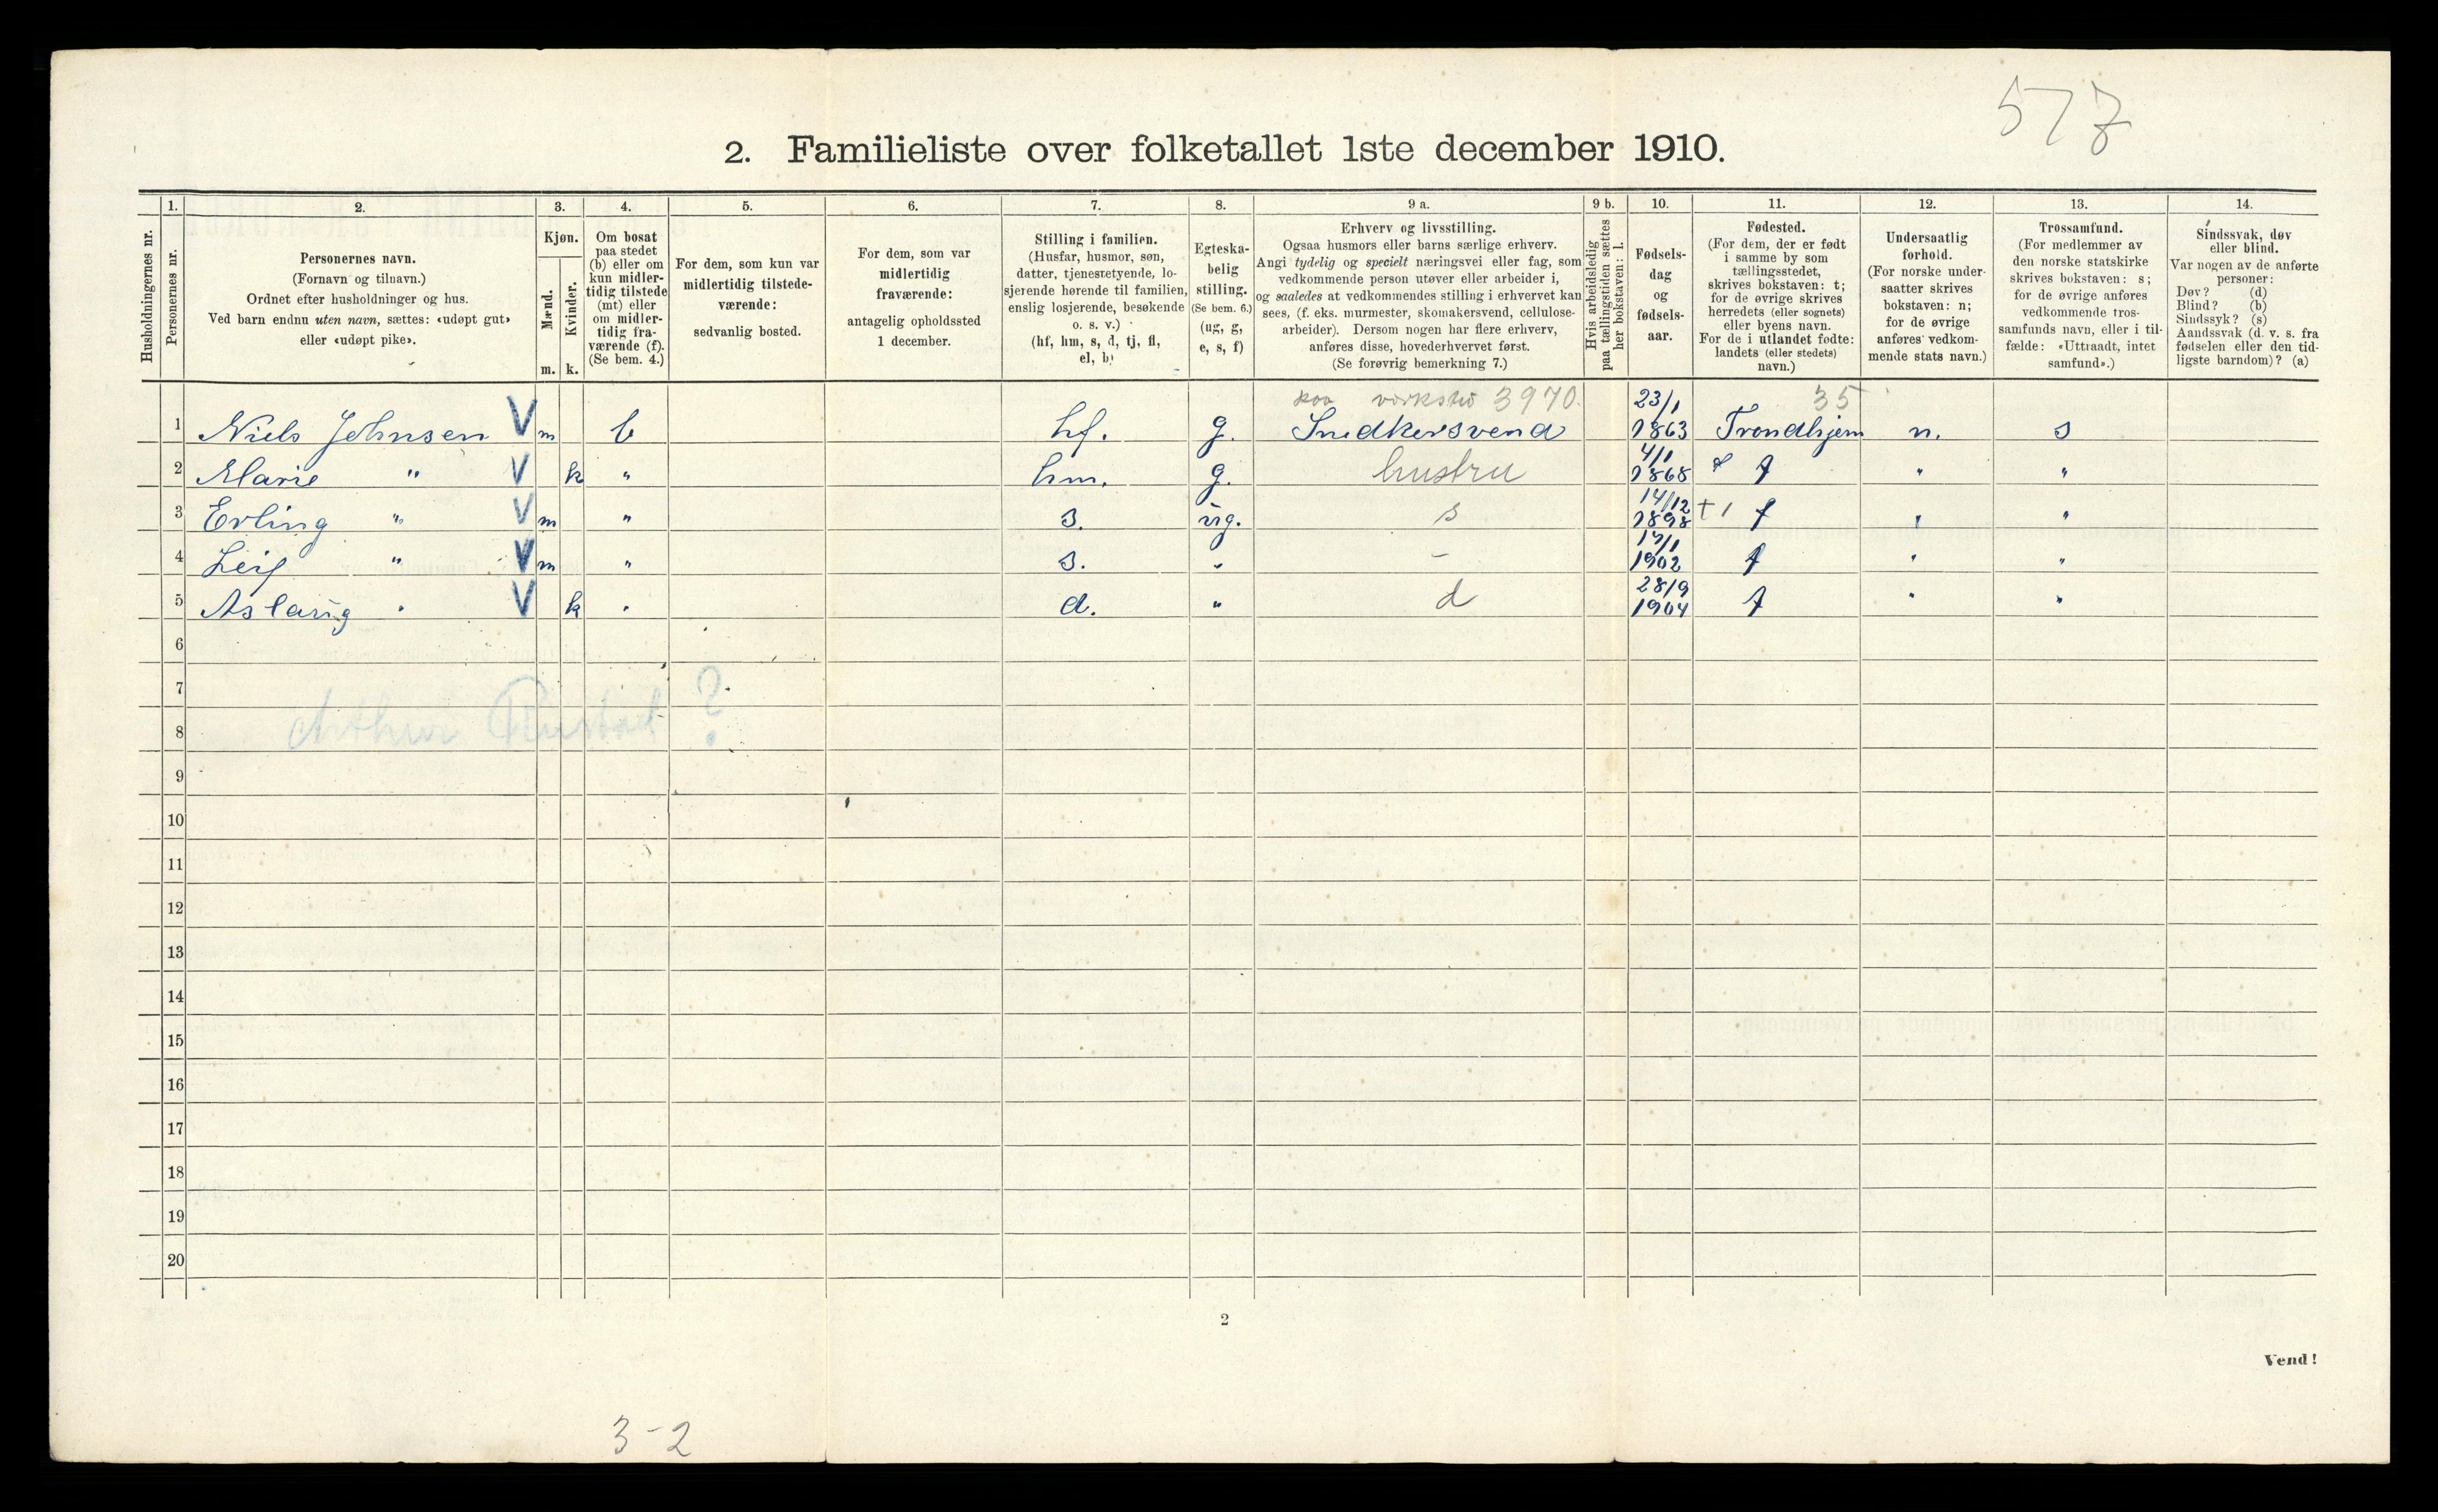 577
2. Familieliste over folketallet 1ste december 1910.
1. 2. 3. 4. 5. 6. 7. 8. 9 a. 9 b. 10. 11. 12. 13. 14.
Husholdningernes nr.
Personernes nr.
Personernes navn.
(Fornavn og tilnavn.)
Ordnet efter husholdninger og hus.
Ved barn endnu uten navn, sættes: «udøpt gut»
eller «udøpt pike».
Kjøn.
Mænd.
Kvinder.
m. k.
Om bosat
paa stedet
(b) eller om
kun midler-
tidig tilstede
(mt) eller
om midler-
tidig fra-
værende (f).
(Se bem. 4.)
For dem, som kun var
midlertidig tilstede-
værende:
sedvanlig bosted.
For dem, som var
midlertidig
fraværende:
antagelig opholdssted
1 december.
Stilling i familien.
(Husfar, husmor, søn,
datter, tjenestetyende, lo-
sjerende hørende til familien,
enslig losjerende, besøkende
o. s. v.)
(hf, hm, s, d, tj, fl,
el, b)
Egteska-
belig
stilling.
(Se bem. 6.)
(ug, g,
e, s, f)
Erhverv og livsstilling.
Ogsaa husmors eller barns særlige erhverv.
Angi tydelig og specielt næringsvei eller fag, som
vedkommende person utøver eller arbeider i,
og saaledes at vedkommendes stilling i erhvervet kan
sees, (f. eks. murmester, skomakersvend, cellulose-
arbeider). Dersom nogen har flere erhverv,
anføres disse, hovederhvervet først.
(Se forøvrig bemerkning 7.)
Hvis arbeidsledig
paa tællingstiden sættes
her bokstaven: l.
Fødsels-
dag
og
fødsels-
aar.
Fødested.
(For dem, der er født
i samme by som
tællingsstedet,
skrives bokstaven: t;
for de øvrige skrives
herredets (eller sognets)
eller byens navn.
For de i utlandet fødte:
landets (eller stedets)
navn.)
Undersaatlig
forhold.
(For norske under-
saatter skrives
bokstaven: n;
for de øvrige
anføres vedkom-
mende stats navn.)
Trossamfund.
(For medlemmer av
den norske statskirke
skrives bokstaven: s;
for de øvrige anføres
vedkommende tros-
samfunds navn, eller i til-
fælde: «Uttraadt, intet
samfund».)
Sindssvak, døv
eller blind.
Var nogen av de anførte
personer:
Døv? (d)
Blind? (b)
Sindssyk? (s)
Aandssvak (d. v. s. fra
fødselen eller den tid-
ligste barndom)? (a)
paa verksted 3970. 35
1 Niels Johnsen V m b hf. g. Snedkersvend 23/1 1863 Trondhjem n. s
2 Marie " V k " hm. g. hustru 4/1 1868 t " "
3 Erling " V m " s. ug. s 14/12 1898 t " "
4 Leif " V m " s. " - 1902 t " "
5 Aslaug " V k " d. " d 28/9 1904 t " "
6
7
Arthur Rustad ?
8
9
10
11
12
13
14
15
16
17
18
19
20
2
Vend!
3-2